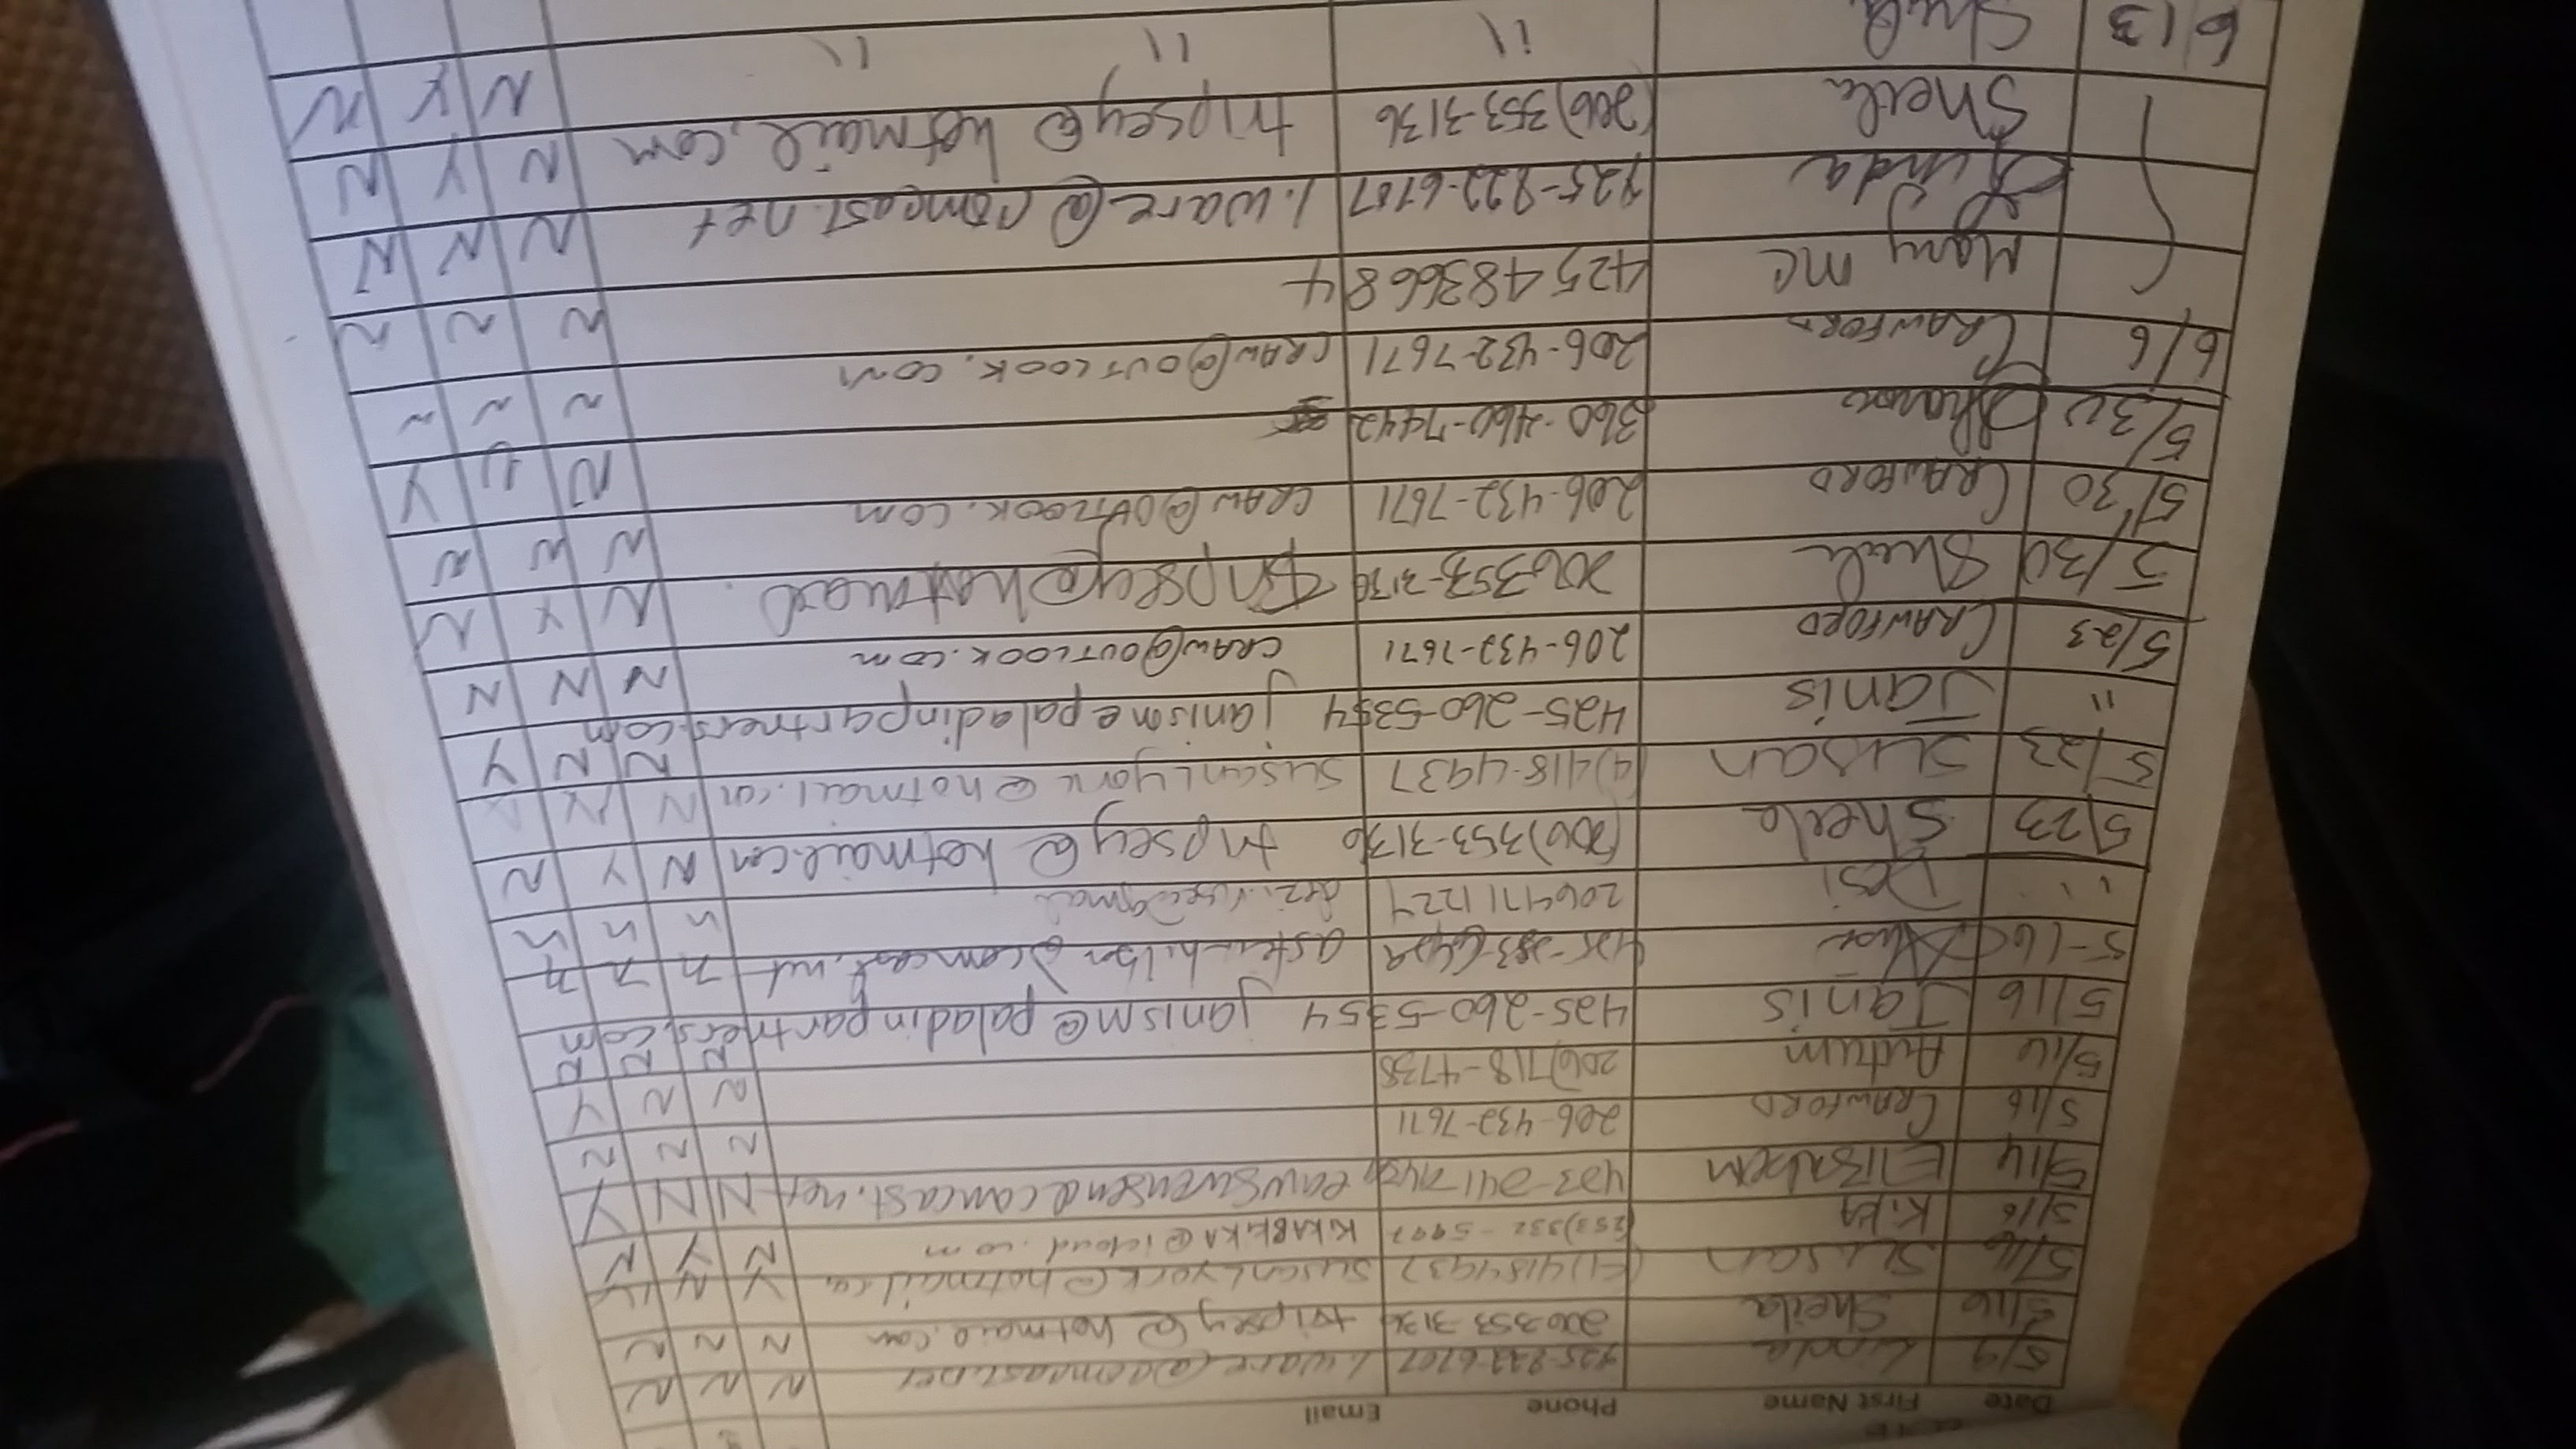 Date First Name Phone Email
5/9 Linda 425-822-6707 l.ware@comcast.net N N N
5/16 Sheila 206 353-3136 tripsey@hotmail.com N N N
5/16 Susan 4184937 susanLyork@hotmail.co Y N N
5/16 KiKA (253)332-5997 KiKABKiKA@icloud.com N Y N
5/16 Elizabeth N N Y
5/16 CRAWFORD 206-432-7671 N N N
5/16 Autum 206)718-4738 N N Y
5/16 Janis 425-260-5354 janism@paladinpartners.com N N N
5-16 @comcast.net n n n
" Desi 2064711224 n n n
5/23 Sheila (206)353-3136 tripsey@hotmail.com N Y N
5/23 Susan (4)418-4937 susanLyork@hotmail.com N N N
" Janis 425-260-5354 janism@paladinpartners.com N N Y
5/23 CRAWFORD 206-432-7671 CRAW@OUTLOOK.COM N N N
5/30 Sheila 206-353-3136 tripsey@hotmail. N Y N
5/30 CRAWFORD 206-432-7671 CRAW@OUTLOOK.COM N N N
5/30 Sharon 360-460-7442 N N Y
6/6 CRAWFORD 206-432-7671 CRAW@OUTLOOK.COM N N N
Mary MC 425 4836684 N N N
Linda 425-822-6707 l.ware@comcast.net N N N
Sheila (206)353-3136 tripsey@hotmail.com N Y N
6/13 Sheila " " " N Y N